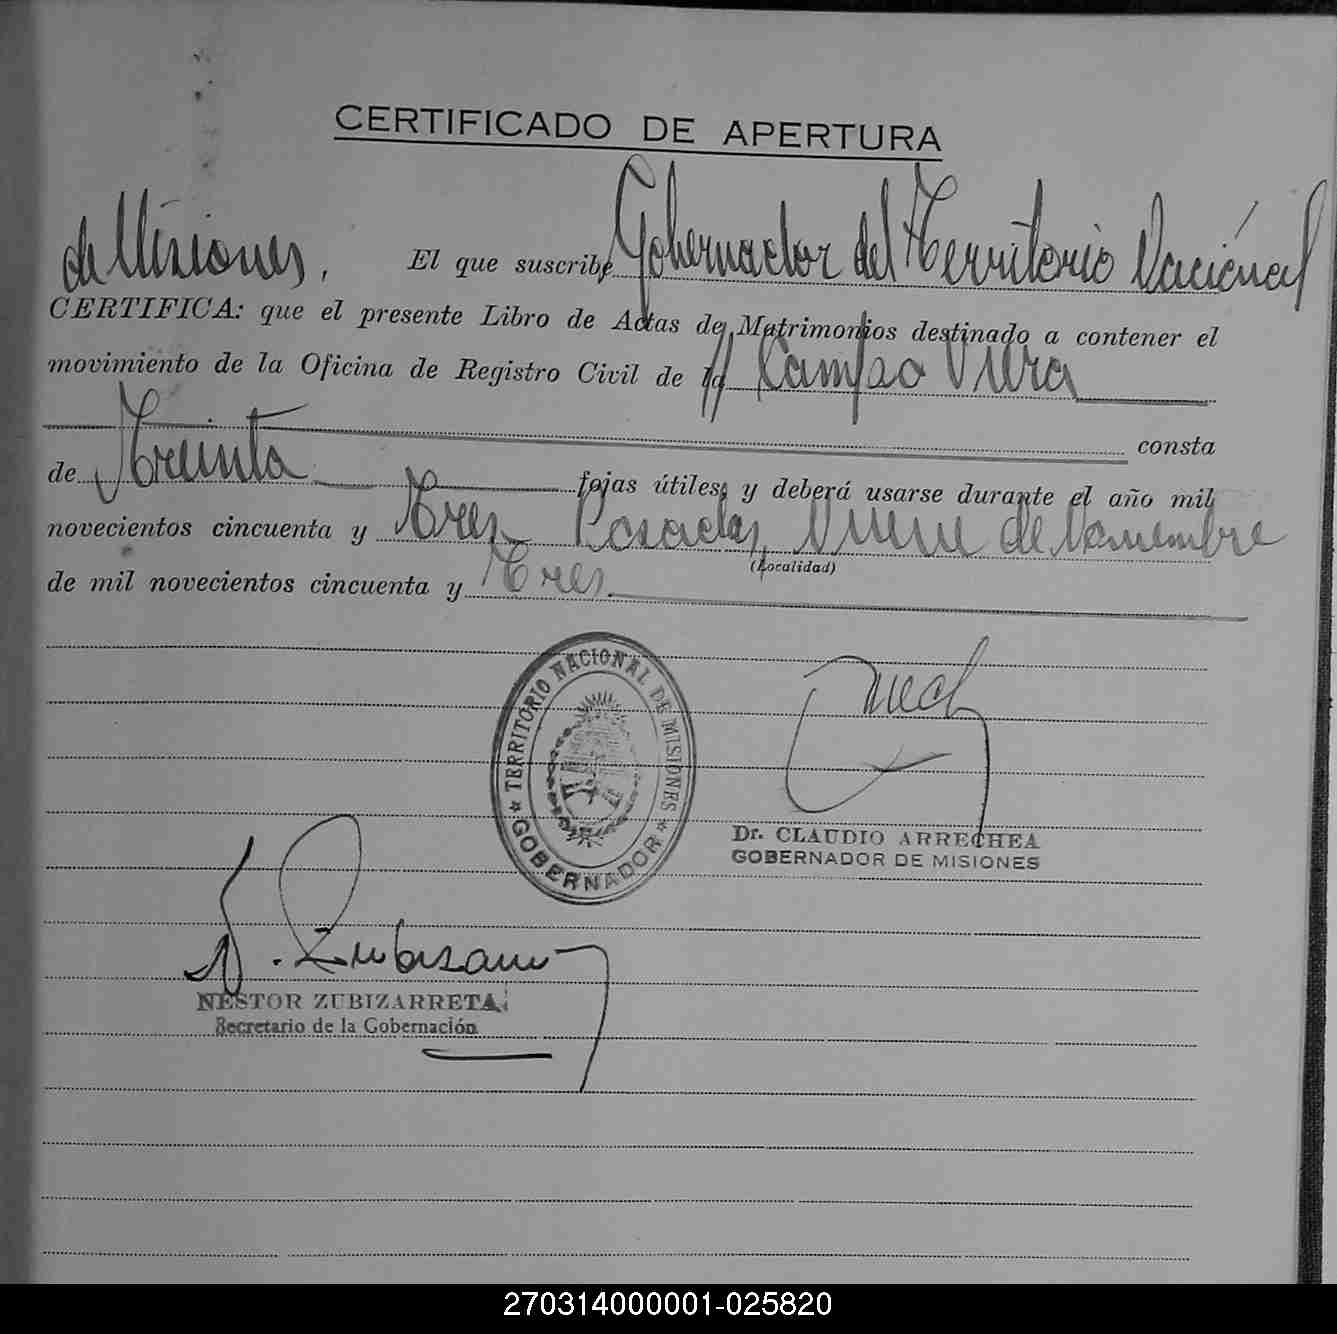 CERTIFICADO DE APERTURA
El que suscribe Gobernador del Territorio Nacional
de Misiones,
CERTIFICA: que el presente Libro de Actas de Matrimonios destinado a contener el
movimiento de la Oficina de Registro Civil de Campo Viera
consta
de Treinta fojas útiles, y deberá usarse durante el año mil
novecientos cincuenta y Tres Posadas, Nueve de Noviembre
(Localidad)
de mil novecientos cincuenta y Tres
TERRITORIO NACIONAL DE MISIONES
GOBERNADOR
Dr. CLAUDIO ARRECHEA
GOBERNADOR DE MISIONES
N. Zubizarreta
NESTOR ZUBIZARRETA
Secretario de la Gobernación
270314000001-025820